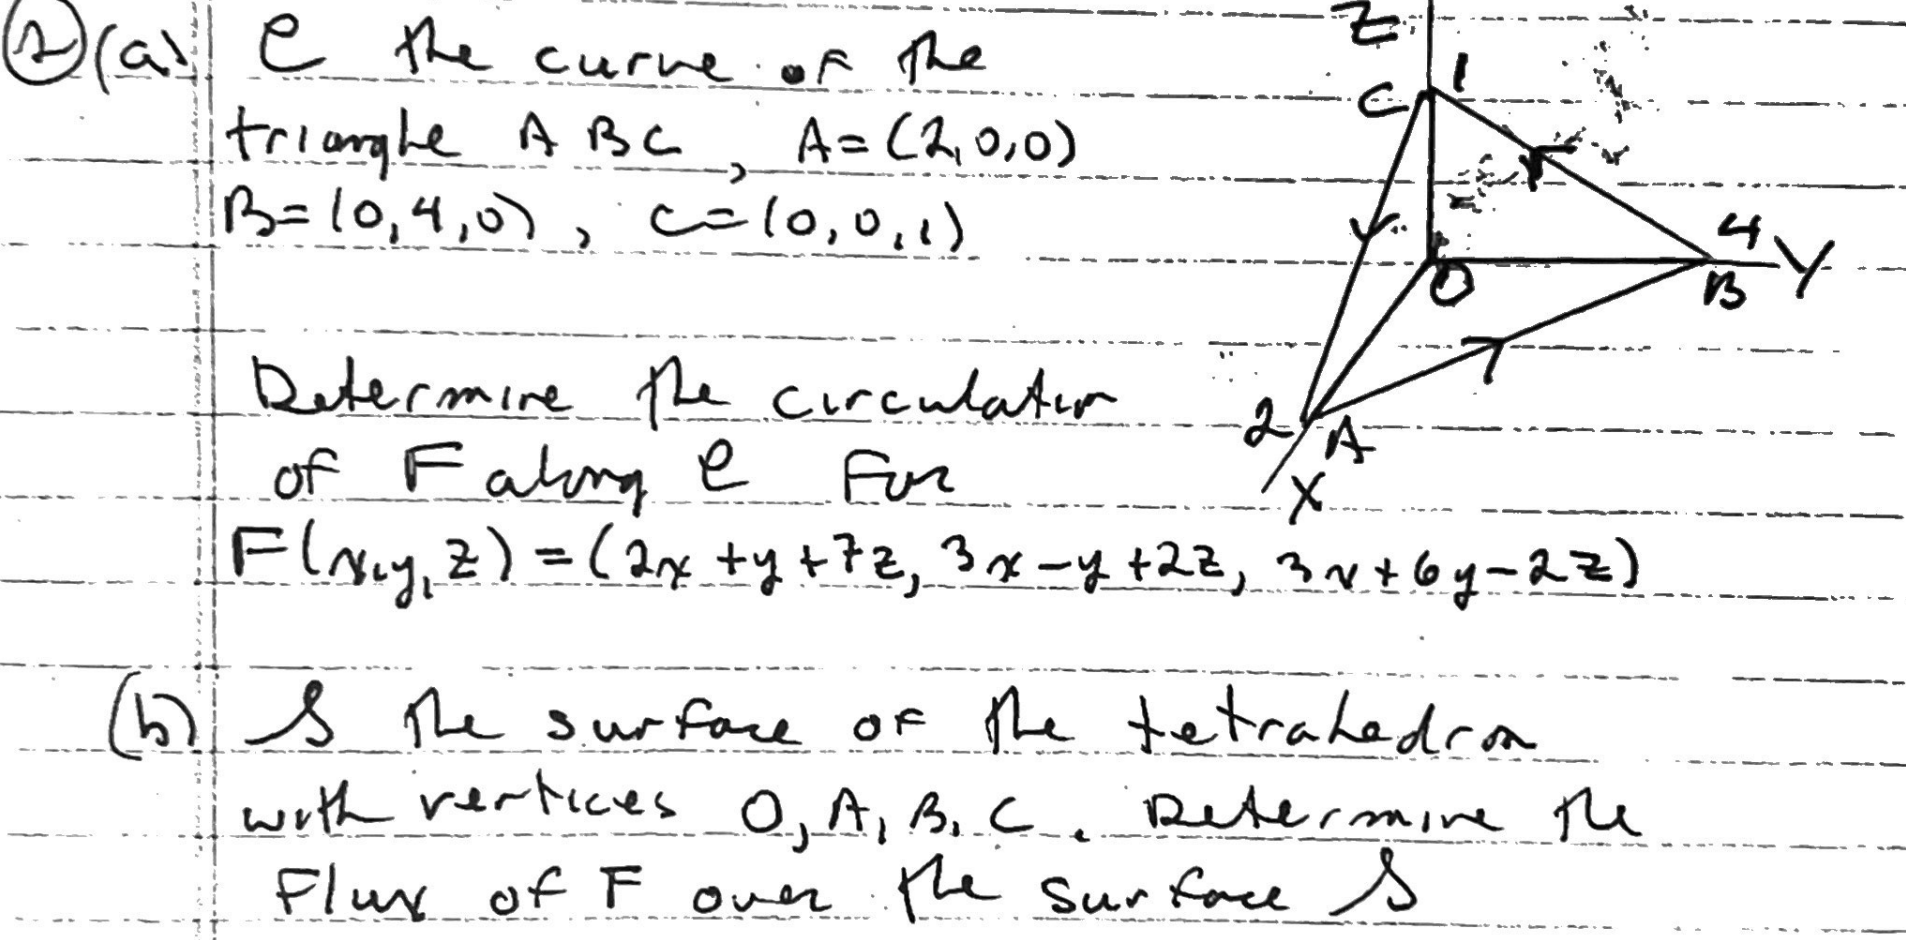 2 (a) C the curve of the
triangle ABC, A=(2,0,0)
B=(0,4,0), C=(0,0,1)
Z
C 1
4 Y
O B
2 A
X
Determine the circulation
of F along C For
F(x,y,z)=(2x+y+7z, 3x-y+2z, 3x+6y-2z)
(b) S the surface of the tetrahedron
with vertices O, A, B, C. Determine the
Flux of F over the surface S